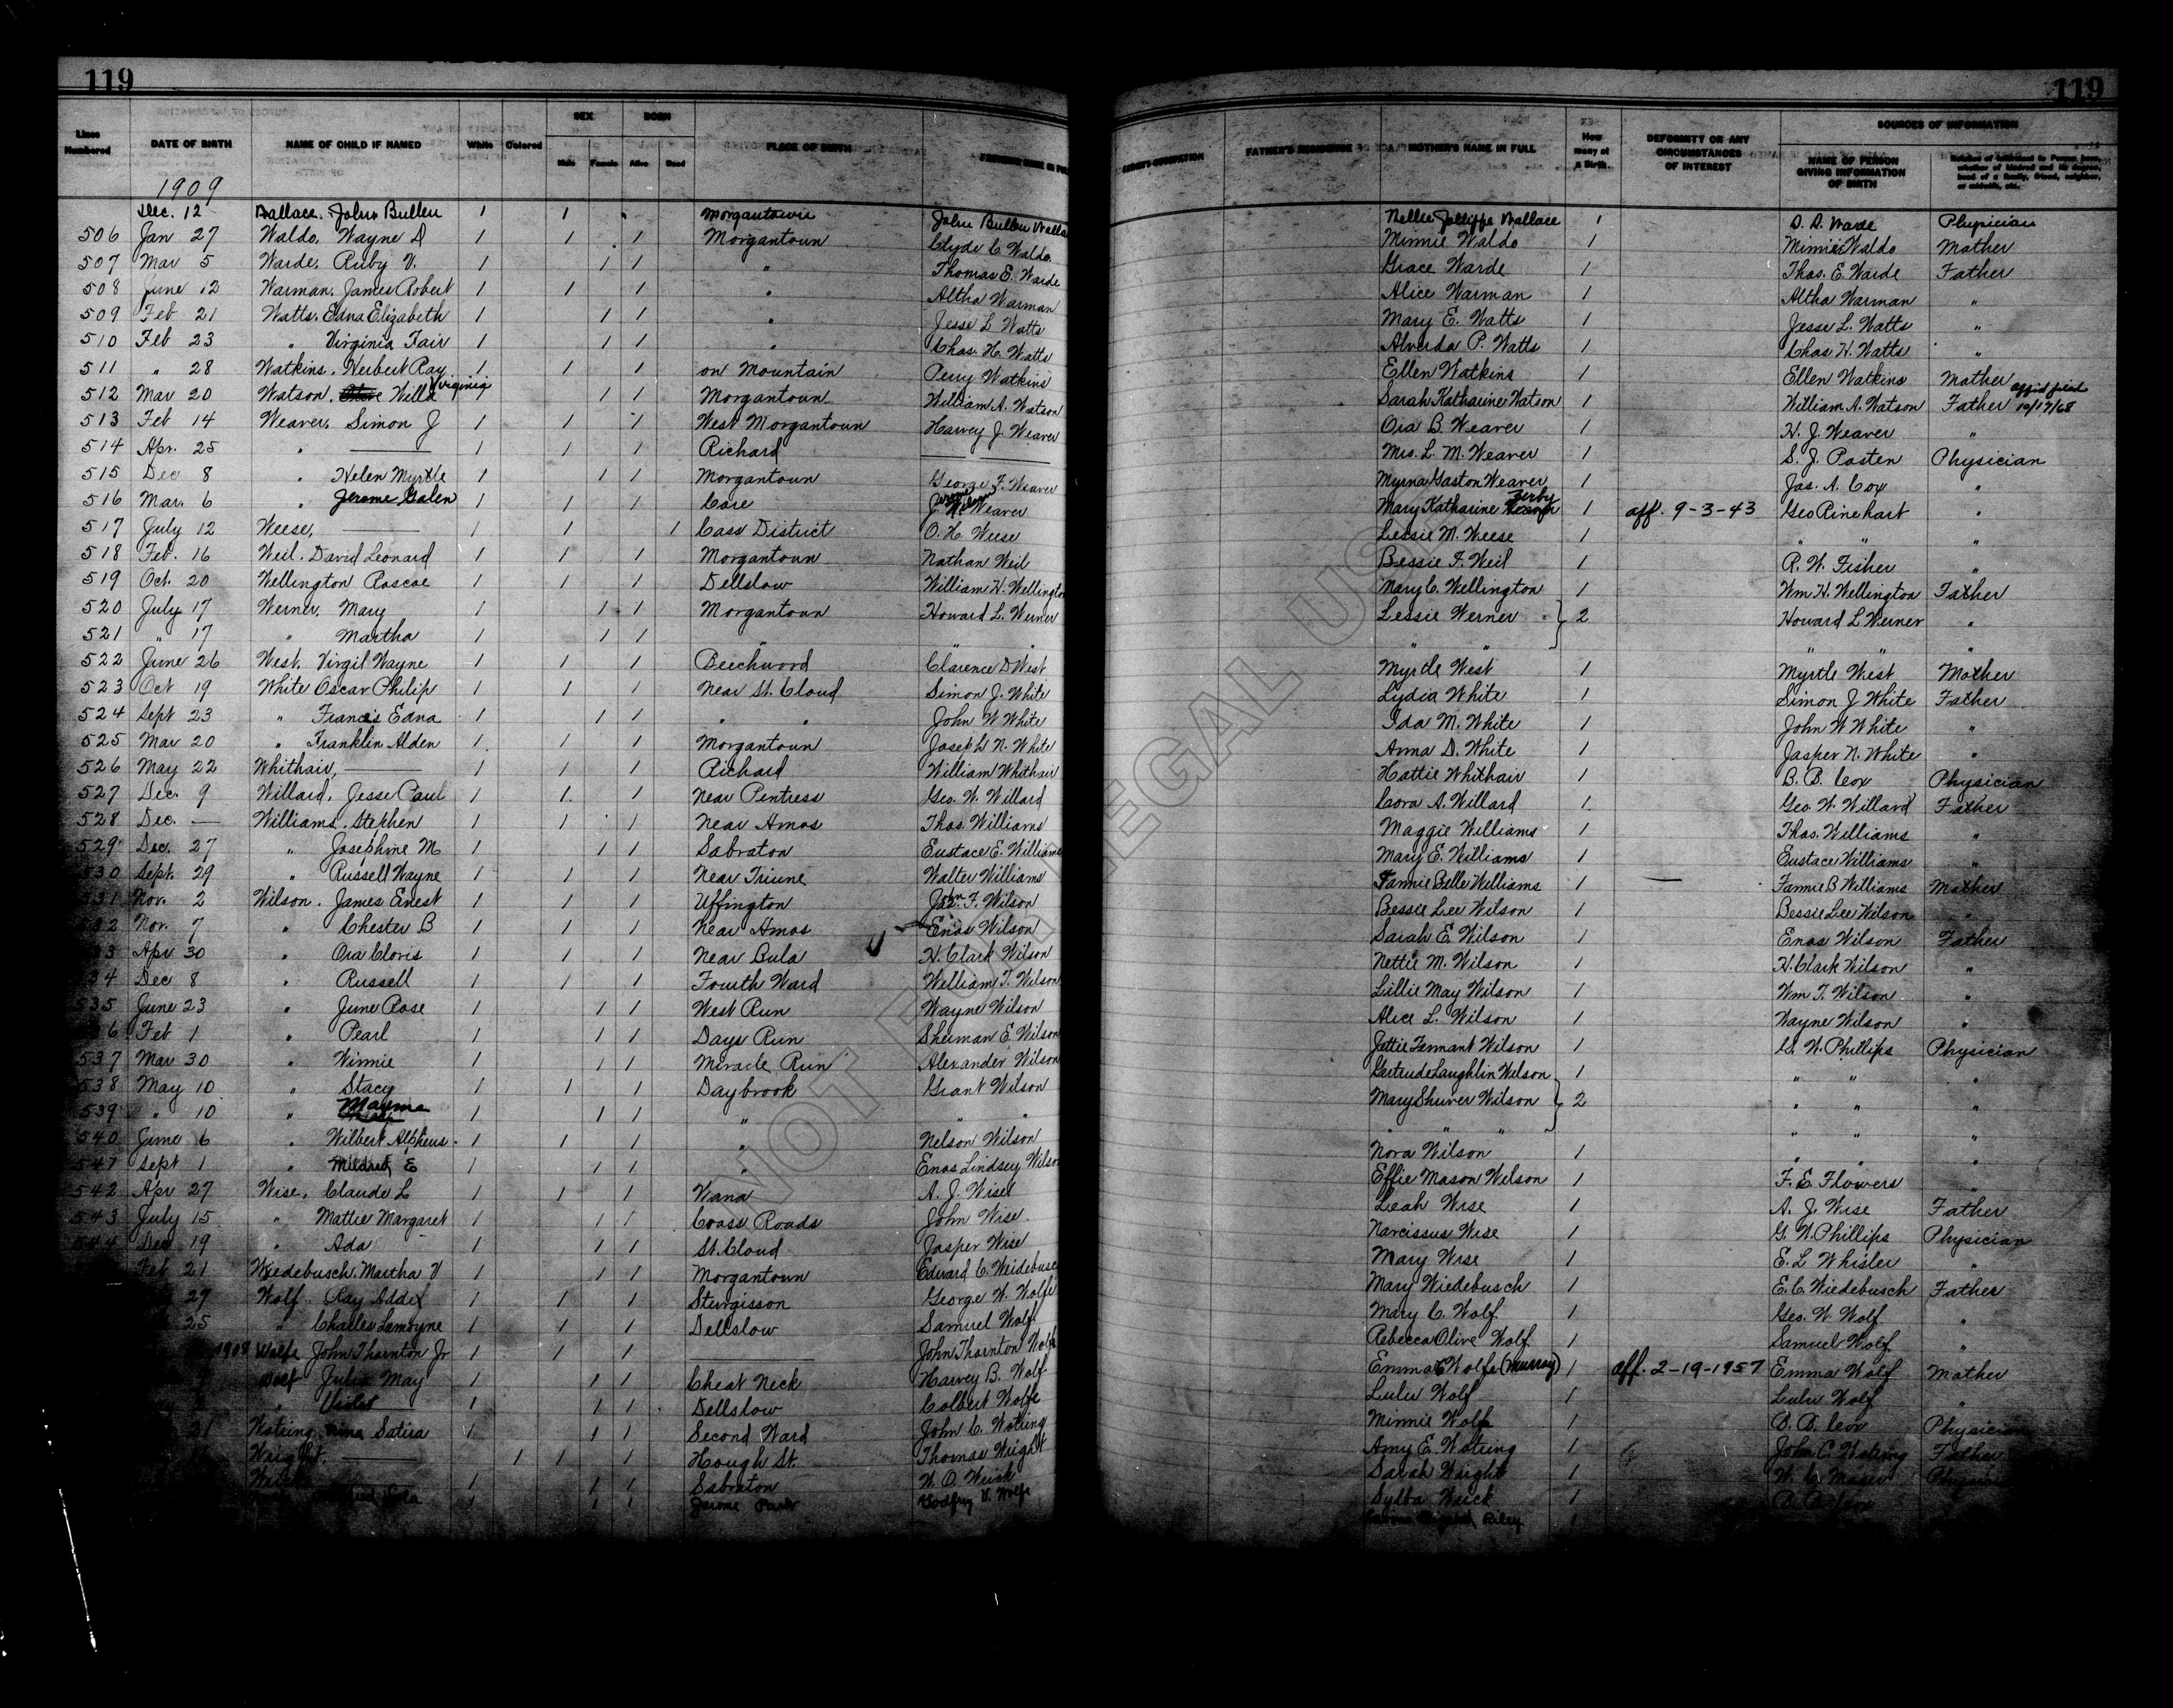 119 119
Lines Numbered DATE OF BIRTH NAME OF CHILD IF NAMED White Colored SEX Male Female BORN Alive Dead PLACE OF BIRTH FATHER'S RESIDENCE MOTHER'S NAME IN FULL How many at a Birth. DEFORMITY OR ANY CIRCUMSTANCES OF INTEREST SOURCES OF INFORMATION NAME OF PERSON GIVING INFORMATION OF BIRTH
1909
Dec. 12 Wallace, John Bullen 1 1 Morgantown John Bullen Nellie Jolliffe Wallace 1 Physician
506 Jan 27 Waldo, Wayne D 1 1 1 Morgantown Clyde C. Waldo. Minnie Waldo 1 Minnie Waldo Mother
507 Mar 5 Warde, Ruby V. 1 1 1 " Thomas E. Warde Grace Warde 1 Thos. E. Warde Father
508 June 12 Warman, James Robert 1 1 1 " Altha Warman Alice Warman 1 Altha Warman "
509 Feb 21 Watts, Edna Elizabeth 1 1 1 " Jesse L Watts Mary E. Watts 1 Jesse L. Watts "
510 Feb 23 " Virginia Fair 1 1 1 " Chas. H. Watts Alverda P. Watts 1 Chas H. Watts "
511 " 28 Watkins, Herbert Ray 1 1 1 on Mountain Perry Watkins Ellen Watkins 1 Ellen Watkins Mother
512 Mar 20 Watson, Willa Virginia 1 1 1 Morgantown William A. Watson Sarah Katharine Watson 1 William A. Watson Father affid filed 10/17/68
513 Feb 14 Weaver, Simon J 1 1 1 West Morgantown Harvey J. Weaver Ora B. Weaver 1 H. J. Weaver "
514 Apr. 25 " 1 1 1 Richard Mrs. L. M. Weaver 1 S. J. Posten Physician
515 Dec 8 " Helen Myrtle 1 1 1 Morgantown George F. Weaver Myrna Gaston Weaver 1 Jas. A. Cox "
516 Mar. 6 " Jerome Galen 1 1 1 Core Weaver Mary Katharine Zerby 1 aff. 9-3-43 Geo Rinehart "
517 July 12 Weese, 1 1 1 Cass District O. H. Weese Lessie M. Weese 1 " " "
518 Feb. 16 Weil, David Leonard 1 1 1 Morgantown Nathan Weil Bessie F. Weil 1 R. W. Fisher "
519 Oct. 20 Wellington Roscoe 1 1 1 Dellslow William H. Wellington Mary C. Wellington 1 Wm H. Wellington Father
520 July 17 Werner, Mary 1 1 1 Morgantown Howard L. Werner Lessie Werner 2 Howard L Werner "
521 " 17 " Martha 1 1 1 " " " " " "
522 June 26 West, Virgil Wayne 1 1 1 Beechwood Clarence D West Myrtle West 1 Myrtle West Mother
523 Oct 19 White Oscar Philip 1 1 1 Near St. Cloud Simon J. White Lydia White 1 Simon J White Father
524 Sept 23 " Francis Edna 1 1 1 " " John W White Ida M. White 1 John W White "
525 Mar 20 " Franklin Alden 1 1 1 Morgantown Joseph N. White Anna D. White 1 Jasper N. White "
526 May 22 Whithair, 1 1 1 Richard William Whithair Hattie Whithair 1 B. B. Cox Physician
527 Dec. 9 Willard, Jesse Paul 1 1 1 Near Pentress Geo. W. Willard Cora A. Willard 1 Geo. W. Willard Father
528 Dec. — Williams, Stephen 1 1 1 Near Amos Thos. Williams Maggie Williams 1 Thos. Williams "
529 Dec. 27 " Josephine M 1 1 1 Sabraton Eustace E. Williams Mary E. Williams 1 Eustace Williams "
530 Sept. 29 " Russell Wayne 1 1 1 Near Triune Walter Williams Fannie Belle Williams 1 — Fannie B Williams Mother
531 Nov. 2 Wilson, James Ernest 1 1 1 Uffington F. Wilson Bessie Lee Wilson 1 Bessie Lee Wilson "
532 Nov. 7 " Chester B 1 1 1 Near Amos Enos Wilson Sarah E. Wilson 1 Enos Wilson Father
33 Apr 30 " Ora Cloris 1 1 1 Near Bula H. Clark Wilson Nettie M. Wilson 1 H. Clark Wilson "
34 Dec 8 " Russell 1 1 1 Fourth Ward William T. Wilson Lillie May Wilson 1 Wm T. Wilson "
535 June 23 " June Rose 1 1 1 West Run Wayne Wilson Alice L. Wilson 1 Wayne Wilson "
36 Feb 1 " Pearl 1 1 1 Days Run Sherman E. Wilson Jettie Tennant Wilson 1 G. W. Phillips Physician
537 Mar 30 " Winnie 1 1 1 Miracle Run Alexander Wilson Gertrude Laughlin Wilson 1 " " "
538 May 10 " Stacy 1 1 1 Daybrook Grant Wilson Mary Shuver Wilson 2 " " "
539 " 10 " Mayme 1 1 1 " " " " " " " "
540 June 6 " Wilbert Alpheus 1 1 1 " Nelson Wilson Nora Wilson 1 " " "
541 Sept 1 " Mildred E 1 1 1 " Enos Lindsey Wilson Effie Mason Wilson 1 F. E. Flowers "
542 Apr 27 Wise, Claude L 1 1 1 Wana A. J. Wise Leah Wise 1 A. J. Wise Father
543 July 15 " Mattie Margaret 1 1 1 Cross Roads John Wise Narcissus Wise 1 G. W. Phillips Physician
544 Dec 19 " Ada 1 1 1 St. Cloud Jasper Wise Mary Wise 1 E. L Whisler "
Feb 21 Wiedebusch, Martha V 1 1 1 Morgantown Edward C. Weidebusc Mary Wiedebusch 1 E. C. Wiedebusch Father
27 Wolf, Ray Addix 1 1 1 Sturgisson George W. Wolfe Mary C. Wolf 1 Geo. W. Wolf "
25 " Charles Lemoyne 1 1 1 Dellslow Samuel Wolf Rebecca Olive Wolf 1 Samuel Wolf "
1908 Wolfe John Thornton Jr 1 1 1 John Thornton Wolfe Emma Wolfe (Murray) 1 aff. 2-19-1957 Emma Wolf Mother
Wolf Julia May 1 1 1 Cheat Neck Harvey B. Wolf Lulu Wolf 1 Lulu Wolf "
" Violet 1 1 1 Dellslow Colbert Wolfe Minnie Wolfe 1 B. B. Cox Physician
21 Watring, Nina Satira 1 1 1 Second Ward John C. Watring Amy E. Watring 1 John C. Watring Father
Wright, 1 1 1 Hough St. Thomas Wright Sarah Wright 1
1 1 1 Sabraton W. O. Wrick Sylba Wrick 1
1 1 1 Jerome Park Godfrey V. Wolfe Riley 1
NOT FOR LEGAL USE